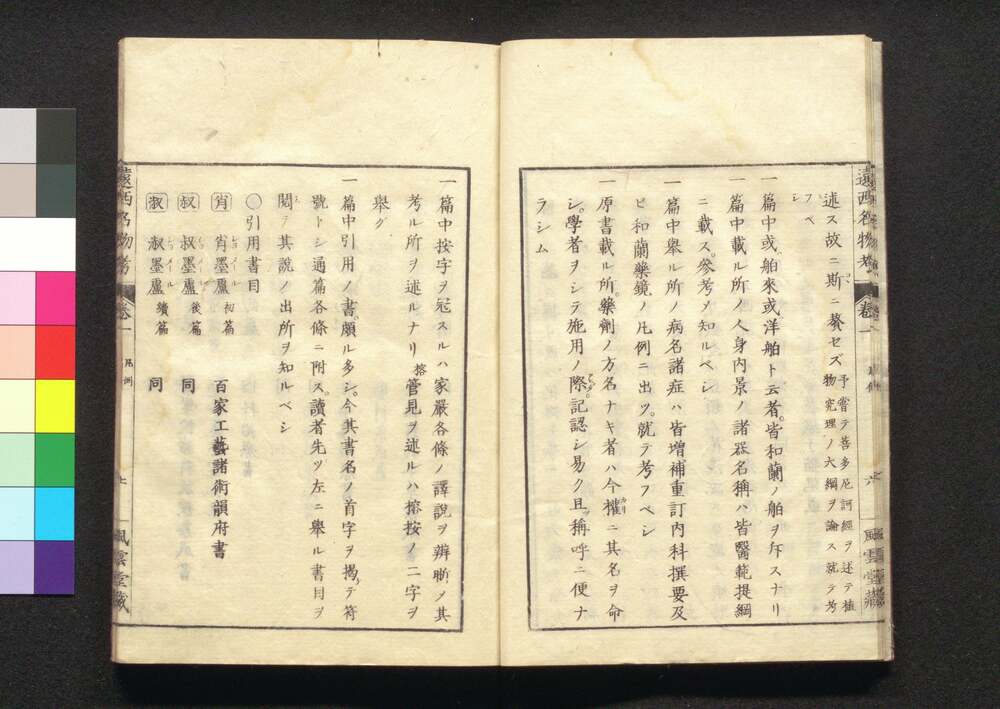 遠西名物考 卷一 六 風雲堂藏
述ス故ニ斯ニ贅セズ 予嘗テ菩多尼訶經ヲ述テ植
物究理ノ大綱ヲ論ス就テ考
フベ
シ
一 篇中或舶來或洋舶ト云者。皆和蘭ノ舶ヲ斥スナリ
一 篇中載ル所ノ人身内景ノ諸器名稱ハ皆醫範提綱
ニ載ス。參考メ知ルベシ
一 篇中舉ル所ノ病名諸症ハ皆增補重訂内科撰要及
ヒ和蘭藥鏡ノ凡例ニ出ツ。就テ考フベシ
一 原書載ル所。藥劑ノ方名ナキ者ハ今權ニ其名ヲ命
シ。學者ヲシテ施用ノ際。記認シ易ク且稱呼ニ便ナ
ラシム
一 篇中按字ヲ冠スルハ家嚴各條ノ譯說ヲ辨晰メ其
考ル所ヲ述ルナリ 榕 管見ヲ述ルハ榕按ノ二字ヲ
舉グ
一 篇中引用ノ書。頗ル多シ。今其書名ノ首字ヲ揭テ符
號トシ通篇各條ニ附ス。讀者先ツ左ニ舉ル書目ヲ
閱テ其說ノ出所ヲ知ルベシ
〇引用書目
肖 肖墨盧 初篇 百家工藝諸術韻府書
叔 叔墨盧 後篇 同
淑 淑墨盧 續篇 同
遠西名物考 卷一 凡例 上 風雲堂藏